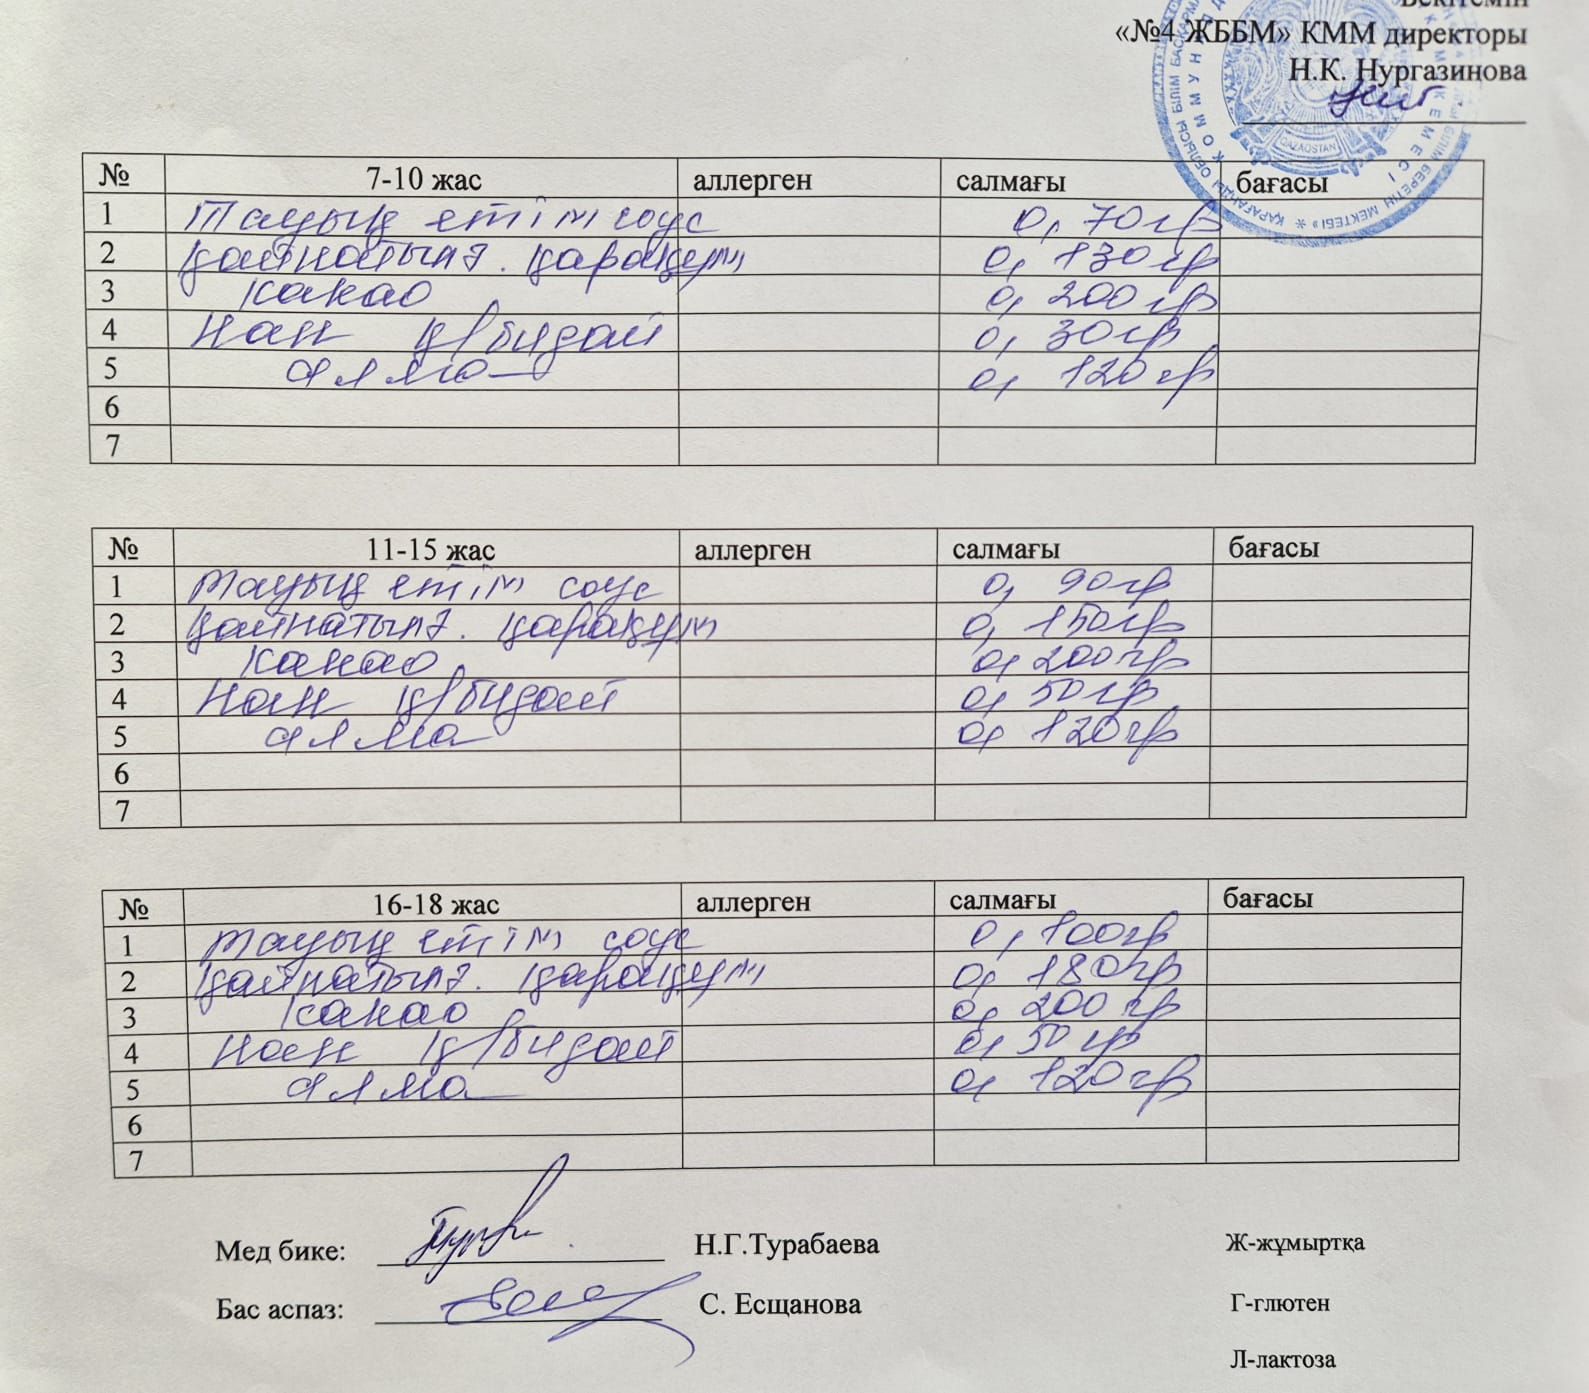 Бекітемін
«№4 ЖББМ» КММ директоры
Н.К. Нургазинова
QAZAQSTAN
№ 7-10 жас аллерген салмағы бағасы
1 Тауық етін соус 0, 70гр
2 қайнатылғ. қарақұм 0, 130гр
3 какао 0, 200гр
4 Нан қ/бидай 0, 30гр
5 алма 0, 120гр
6
7
№ 11-15 жас аллерген салмағы бағасы
1 тауық етін соус 0, 90гр
2 қайнатылғ. қарақұм 0, 150гр
3 какао 0, 200гр
4 Нан қ/бидай 0, 50гр
5 алма 0, 120гр
6
7
№ 16-18 жас аллерген салмағы бағасы
1 тауық етін соус 0, 100гр
2 қайнатылғ. қарақұм 0, 180гр
3 какао 0, 200гр
4 нан қ/бидай 0, 50гр
5 алма 0, 120гр
6
7
Мед бике: Н.Г.Турабаева Ж-жұмыртқа
Бас аспаз: С. Есщанова Г-глютен
Л-лактоза